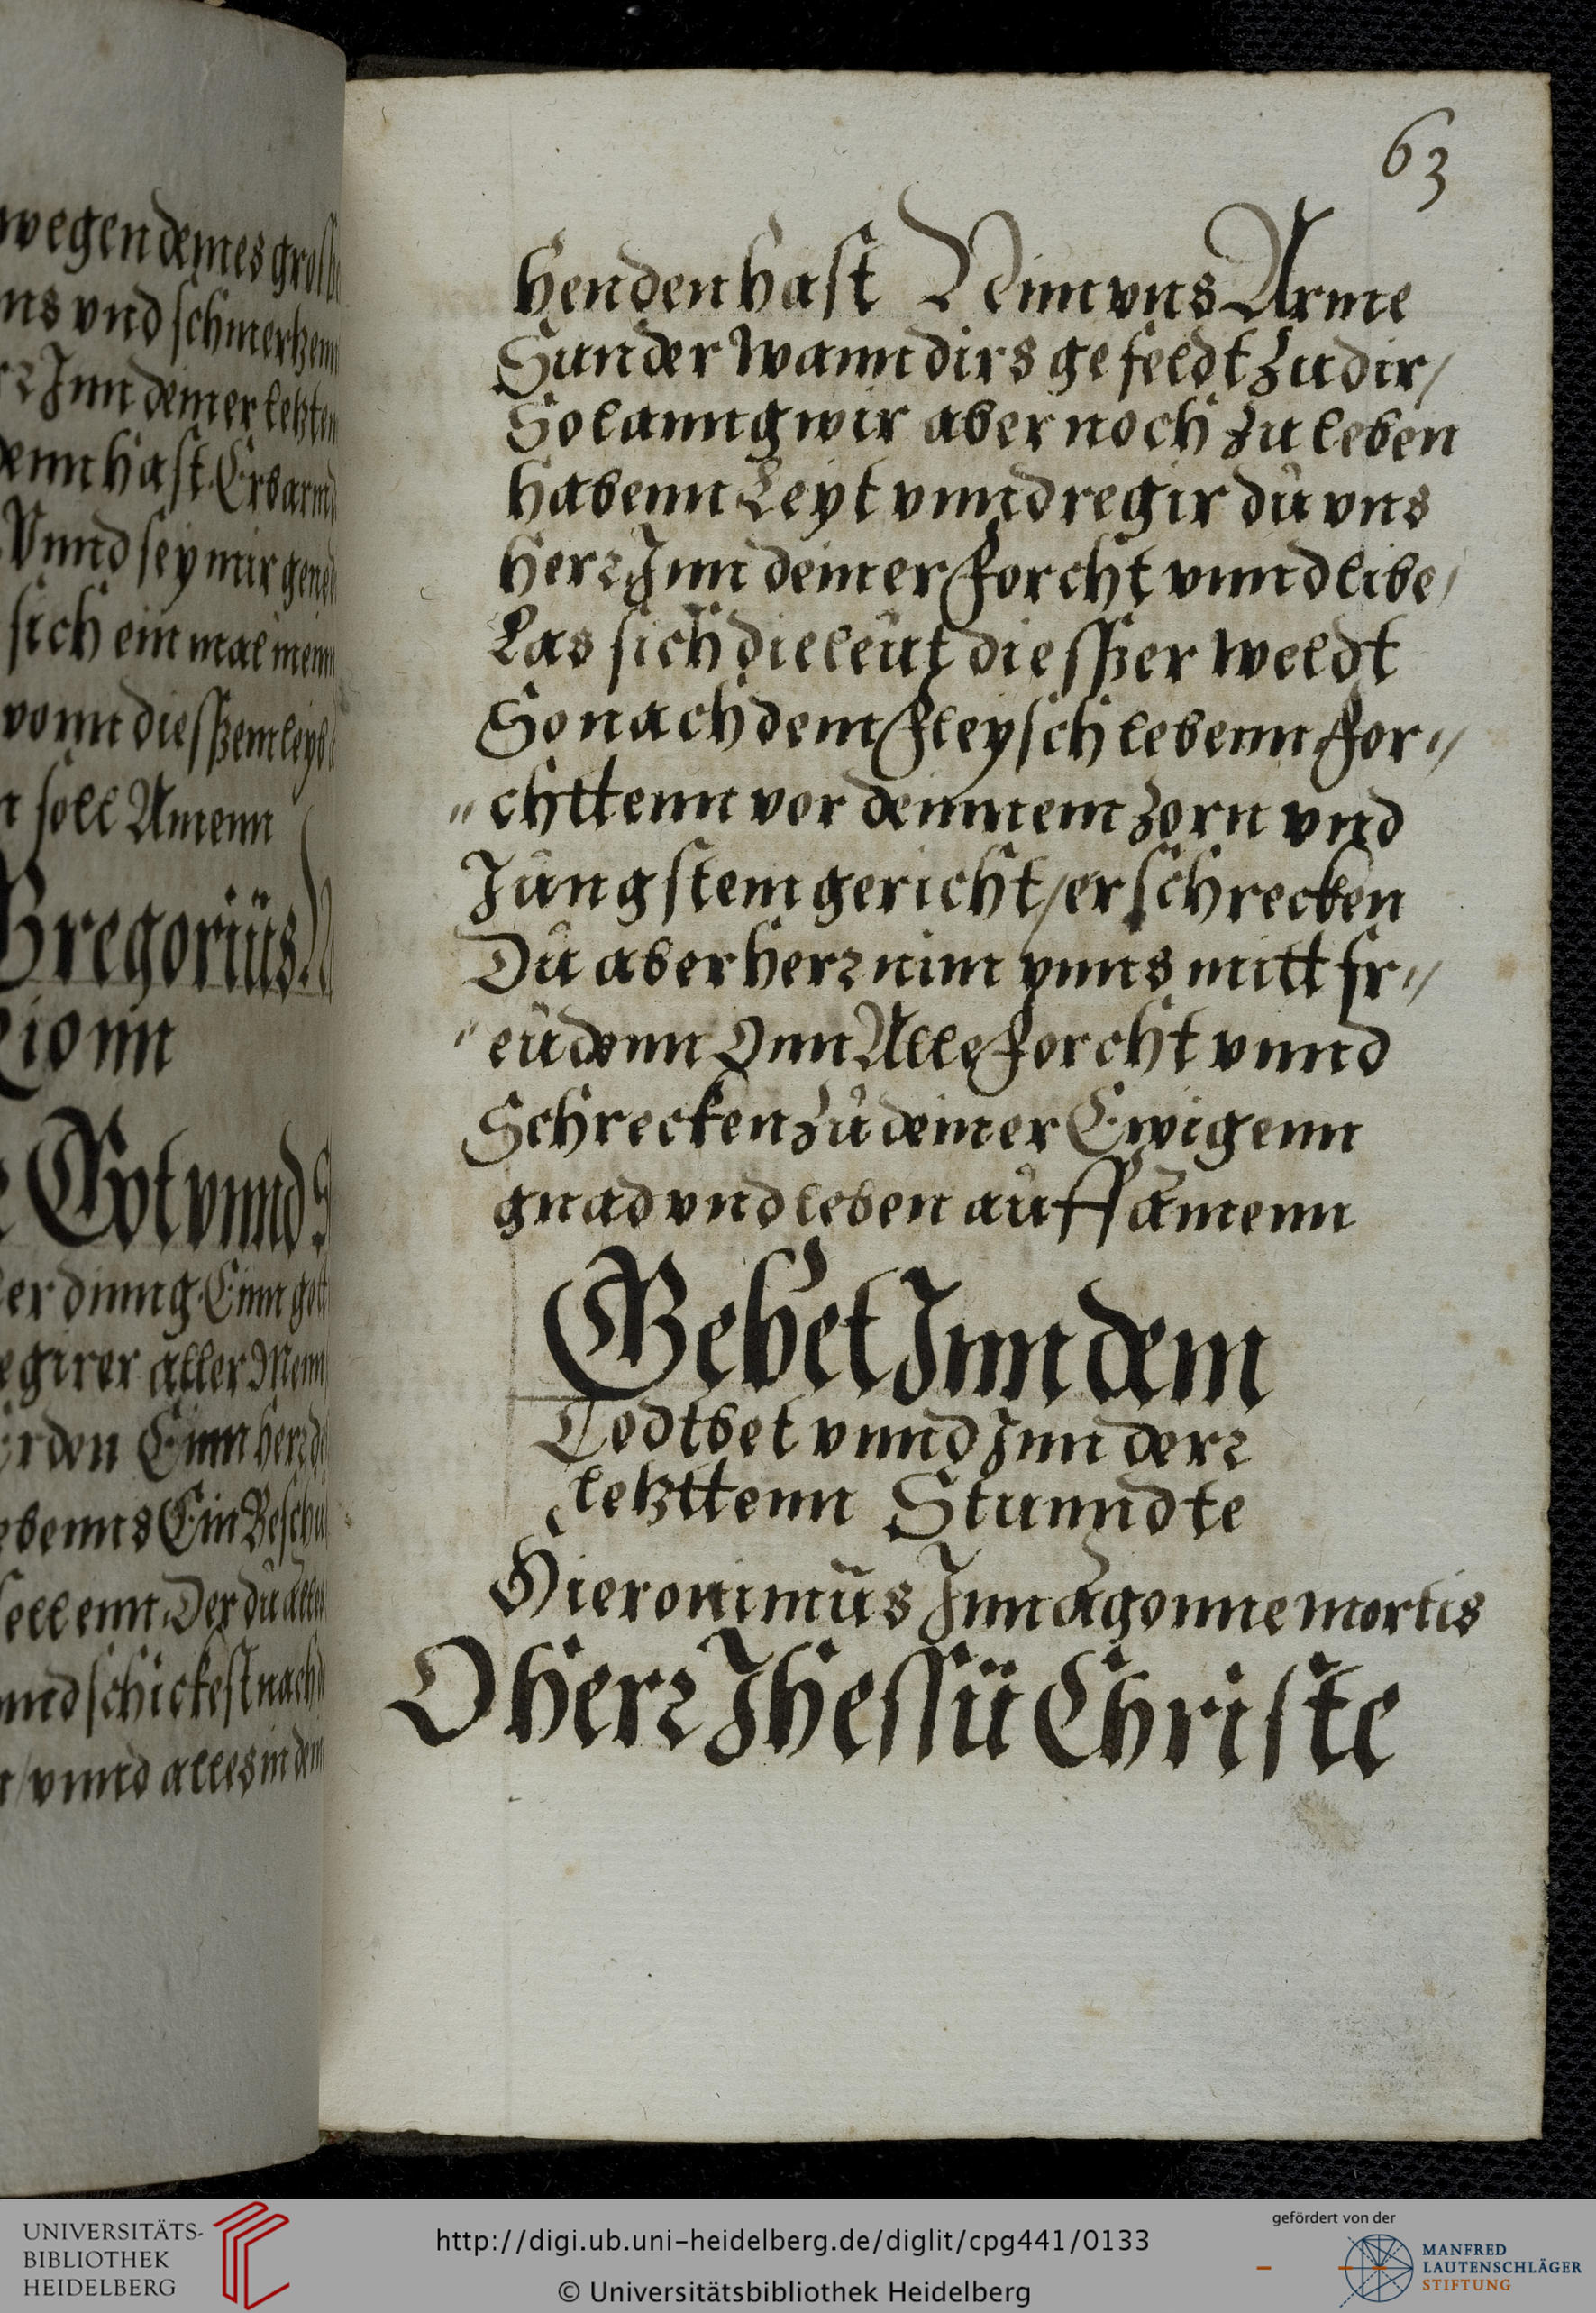 wegen deines gros
ns vnd schmertzenn
Inn deiner letzten
denn hast Erbarm
Vnnd sey mir gene
sich ein mal meinn
vonn diesßem leyb
soll Amenn
Gregorius
ionn
Got vnnd
er dinng Einn got
egirer aller Menn
rden Einn herr de
ebenns Ein Beschu
ellenn Der du alles
nnd schickest nach
vnnd alles in dem
63
henden hast Nim vns Arme
Sunder wann dirs gefeldt zu dir /
So lanng wir aber noch zu leben
habenn Leyt vnnd regir du vns
herr Inn deiner forcht vnnd libe /
Las sich die leut diesßer weldt
So nach dem fleysch lebenn for〃
〃chttenn vor deinnem zorn vnd
Jungstem gericht / erschrecken
Du aber herr nim vnns mitt fr〃
〃eudenn Onn Alle forcht vnnd
Schrecken zu deiner Ewigenn
gnad vnd leben auff amenn
Gebet Inn dem
Todtbet vnnd Inn derr
letzttenn Stunndte
Hieronimus Inn agonne mortis
O herr Jhessu Christe
UNIVERSITÄTS-
BIBLIOTHEK
HEIDELBERG
http://digi.ub.uni-heidelberg.de/diglit/cpg441/0133
© Universitätsbibliothek Heidelberg
gefördert von der
MANFRED
LAUTENSCHLÄGER
STIFTUNG